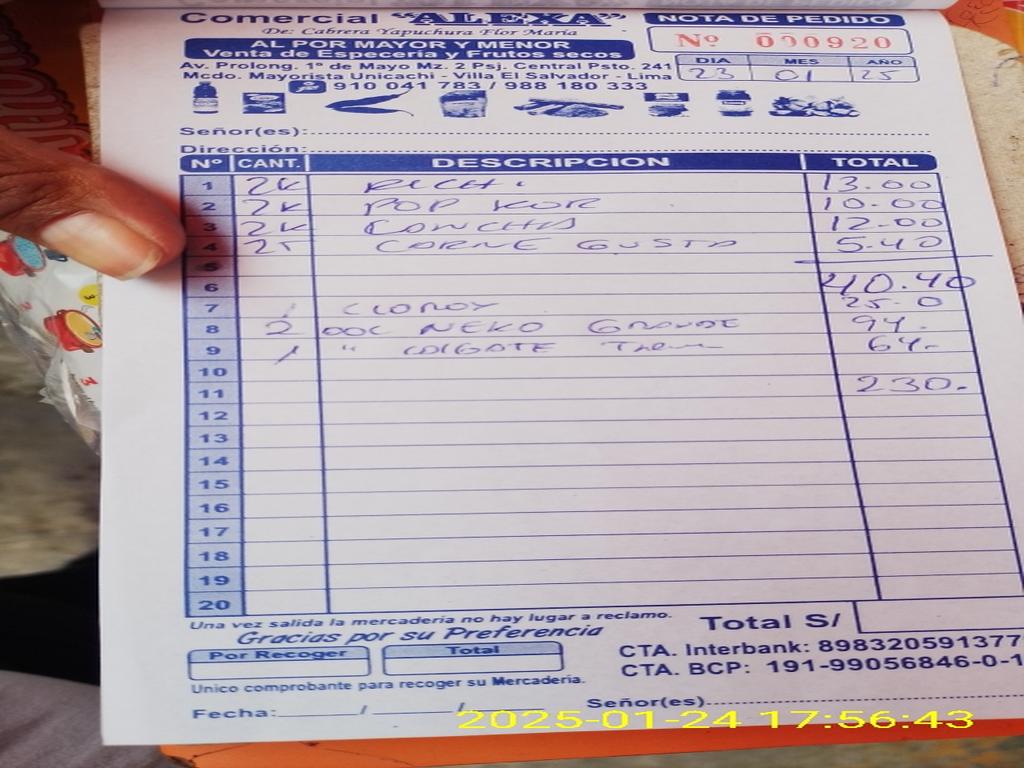 Comercial "ALEXA"
De: Cabrera Yapuchura Flor María
AL POR MAYOR Y MENOR
Venta de Especería y Frutos secos
Av. Prolong. 1º de Mayo Mz. 2 Psj. Central Psto. 241
Mcdo. Mayorista Unicachi - Villa El Salvador - Lima
910 041 783 / 988 180 333
NOTA DE PEDIDO
Nº 000920
DIA MES AÑO
23 01 25
Señor(es):
Dirección:
Nº CANT. DESCRIPCION TOTAL
1 2K 13.00
2 2K POP KOR 10.00
3 2K CONCHA 12.00
4 2T CARNE GUSTO 5.40
5
6 40.40
7 1 CLOROX 25.0
8 2 DOC NEKO GRANDE 94.
9 1 " COLGATE 64.
10
11 230.
12
13
14
15
16
17
18
19
20
Una vez salida la mercadería no hay lugar a reclamo.
Gracias por su Preferencia
Total S/
Por Recoger Total
CTA. Interbank: 898320591377
CTA. BCP: 191-99056846-0-1
Unico comprobante para recoger su Mercadería.
Fecha: / / Señor(es)
2025-01-24 17:56:43